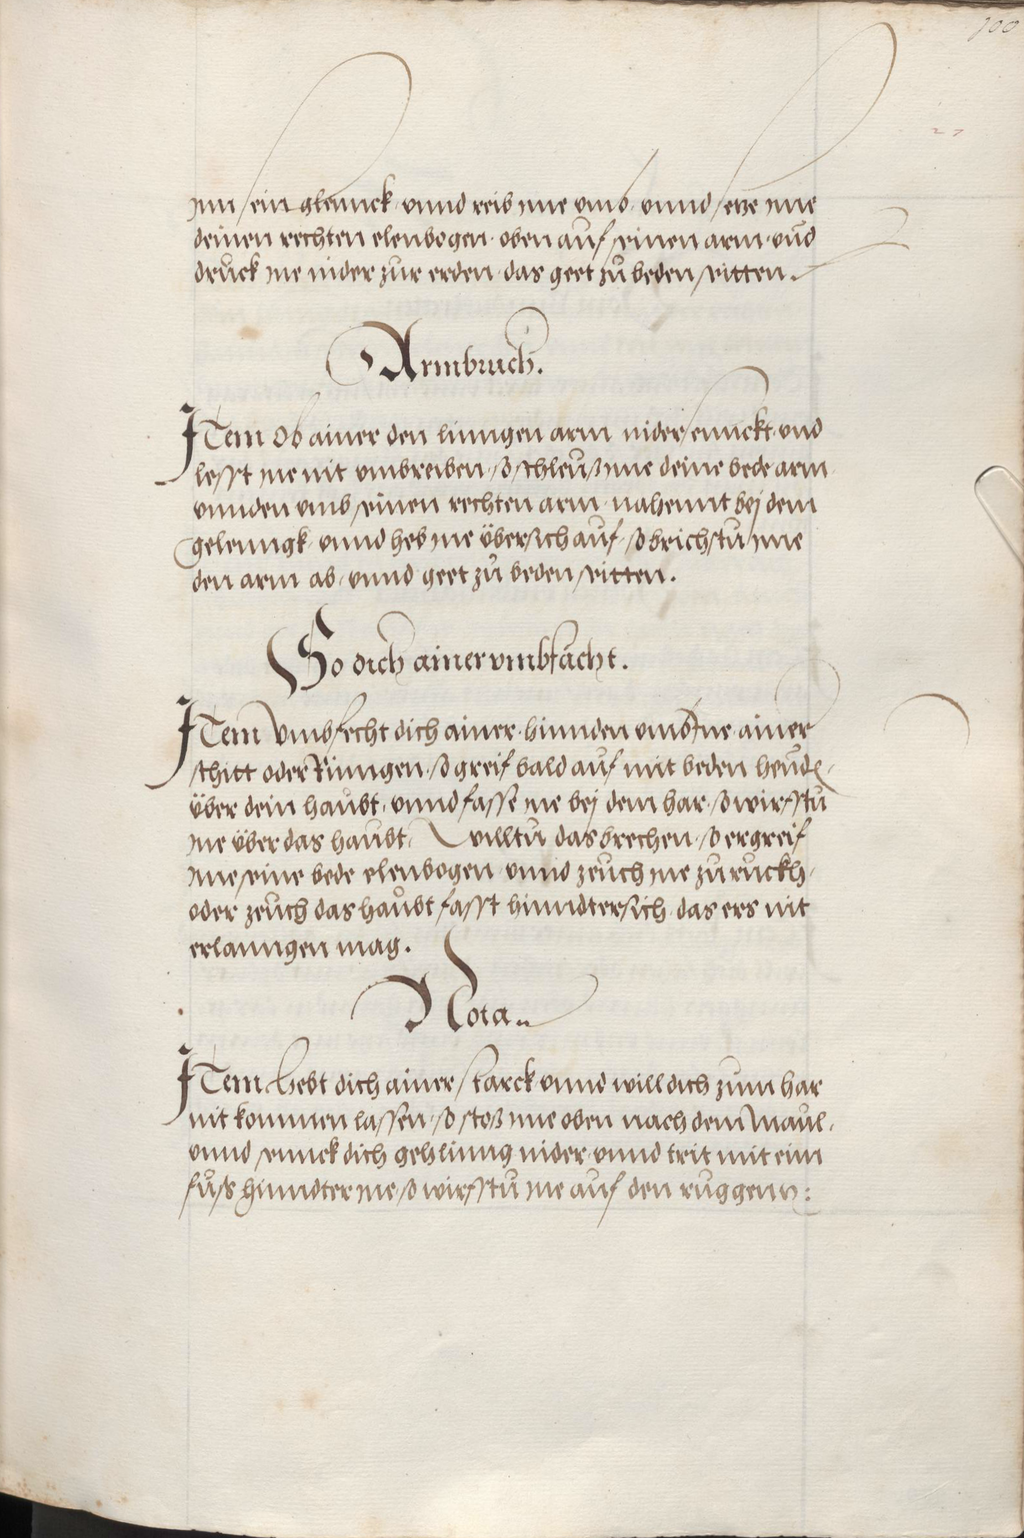 100
27
inn sein glennck vnnd reib ime vmb vnnd setze ime
deinen rechten elenbogen oben auf seinen arm vnd
druck ine nider zur erden das geet zů beden seitten.
Armbruch.
Item Ob ainer den linngen arm nider sennckt vnd
lesst ine nit vmbreiben so schleus ime deine bede arm
vnnden vmb seinen rechten arm nahennt bej dem
gelenngk vnnd heb ine übersich auf so brichstu ime
den arm ab vnnd geet zů beden seitten.
So dich ainer vmbfächt.
Item Vmbfecht dich ainer hinnden vmb ine ainer
schitt oder Rinngen so greif bald auf mit beden hennden
über dein haubt vnnd fasse ine bej dem har so wirfstu
ine über das haubt Willtu das brechen so ergreif
ime seine bede elenbogen vnnd zeuch ine zuruckh
oder zeuch das haubt fasst hinndtersich das ers nit
erlanngen mag.
Nota
Item Hebt dich ainer starck vnnd will dich zum har
nit kommen lassen so stoß ime oben nach dem Maul
vnnd sennck dich gehlinng nider vnnd trit mit eim
fuss hinndter ine so wirfstu ine auf den ruggenn: